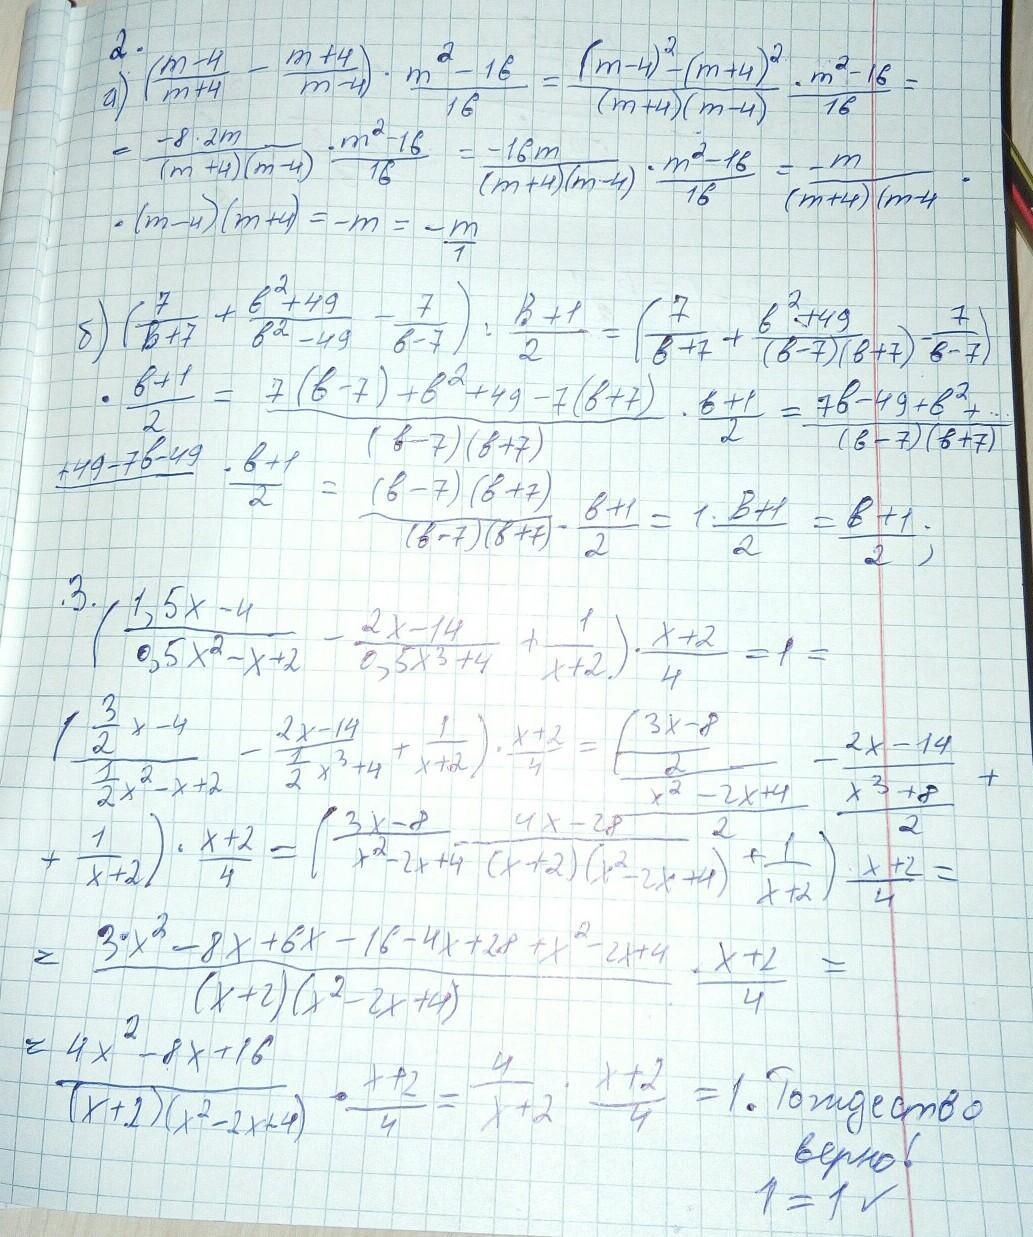 2.
а) ((m-4)/(m+4) - (m+4)/(m-4)) · (m²-16)/16 = ((m-4)²-(m+4)²)/((m+4)(m-4)) · (m²-16)/16 =
= (-8·2m)/((m+4)(m-4)) · (m²-16)/16 = (-16m)/((m+4)(m-4)) · (m²-16)/16 = (-m)/((m+4)(m-4 ·
· (m-4)(m+4) = -m = -m/1
б) (7/(в+7) + (в²+49)/(в²-49) - 7/(в-7)) : (в+1)/2 = (7/(в+7) + (в²+49)/((в-7)(в+7)) - 7/(в-7))
· (в+1)/2 = (7(в-7)+в²+49-7(в+7))/((в-7)(в+7)) · (в+1)/2 = (7в-49+в²+...)/((в-7)(в+7))
+49-7в-49 · (в+1)/2 = ((в-7)(в+7))/((в-7)(в+7)) · (в+1)/2 = 1 · (в+1)/2 = (в+1)/2;
3.
((1,5x-4)/(0,5x²-x+2) - (2x-14)/(0,5x³+4) + 1/(x+2)) · (x+2)/4 = 1 =
((3/2 x-4)/(1/2 x²-x+2) - (2x-14)/(1/2 x³+4) + 1/(x+2)) · (x+2)/4 = (((3x-8)/2)/((x²-2x+4)/2) - (2x-14)/((x³+8)/2) +
+ 1/(x+2)) · (x+2)/4 = ((3x-8)/(x²-2x+4) - (4x-28)/((x+2)(x²-2x+4)) + 1/(x+2)) · (x+2)/4 =
= (3·x²-8x+6x-16-4x+28+x²-2x+4)/((x+2)(x²-2x+4)) · (x+2)/4 =
= (4x²-8x+16)/((x+2)(x²-2x+4)) · (x+2)/4 = 4/(x+2) · (x+2)/4 = 1. Тождество
верно!
1 = 1 ✓